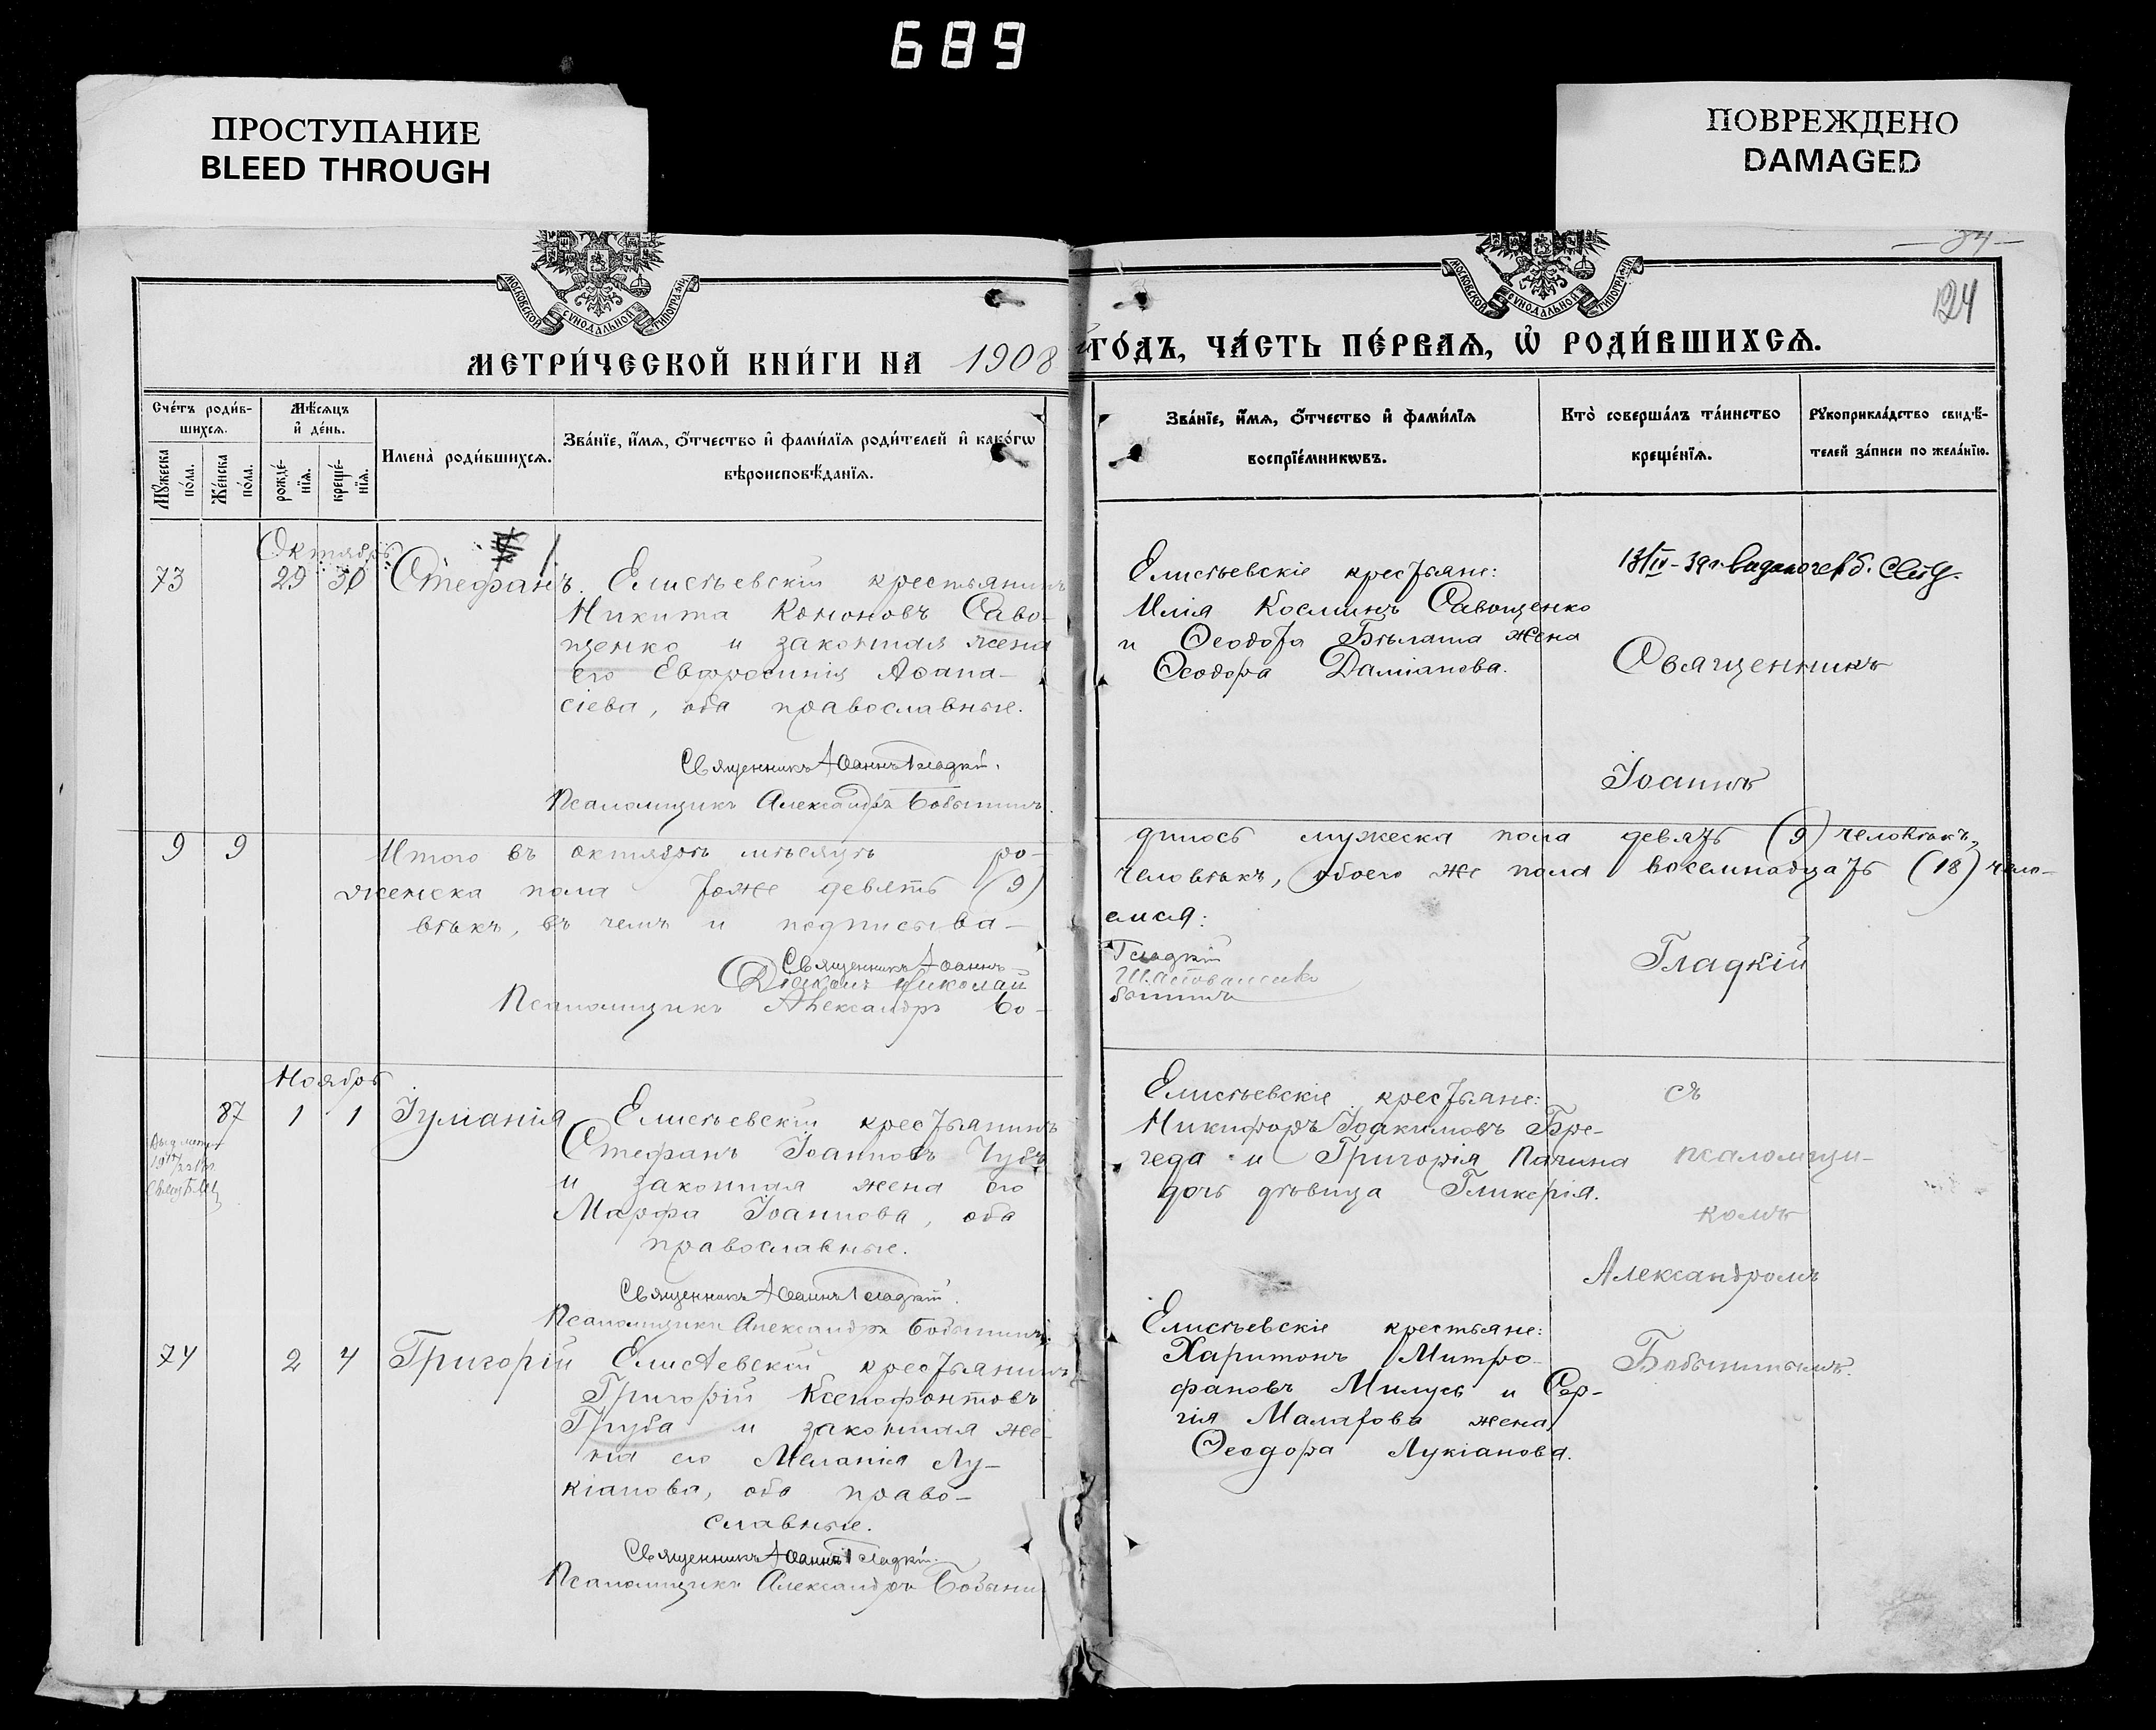 689
ПРОСТУПАНИЕ
BLEED THROUGH
ПОВРЕЖДЕНО
DAMAGED
МОСКОВСКОЙ СѴНОДАЛЬНОЙ ТИПОГРАФІИ
МОСКОВСКОЙ СѴНОДАЛЬНОЙ ТИПОГРАФІИ
124
МЕТРИ́ЧЕСКОЙ КНИ́ГИ НА 1908 й ГО́ДЪ, ЧА́СТЬ ПЕ́РВАѦ, Ѡ҆ РОДИ́ВШИХСѦ.
Сче́тъ роди́в-
шихсѧ.
Мꙋ́жеска по́ла.
Же́нска по́ла.
Мѣ́сѧцъ
и҆ де́нь.
рожде́-
нїѧ.
креще́-
нїѧ.
Имена̀ роди́вшихсѧ.
Зва́нїе, и҆́мѧ, ѻ҆́тчество и҆ фами́лїѧ роди́телей и҆ како́гѡ
вѣроисповѣ́данїѧ.
Зва́нїе, и҆́мѧ, ѻ҆́тчество и҆ фами́лїѧ
воспрїе́мникѡвъ.
Кто̀ соверша́лъ та́инство
креще́нїѧ.
Рꙋкоприкла́дство свидѣ́-
телей за́писи по жела́нїю.
Октябрь
73 29 30 Стефанъ. Елисѣевскій крестьянинъ
Никита Кононовъ Саво-
щенко и законная жена
его Евфросинія Аѳана-
сіева, оба православные.
Священникъ Іоаннъ Гладкій.
Псаломщикъ Александръ Бобынинъ.
Елисѣевскіе крестьяне:
Илія Косминъ Савощенко
и Ѳеодора Бѣлаша жена
Ѳеодора Даміанова.
13/IV-39г.
Священникъ
Іоаннъ
9 9 Итого въ октябрѣ мѣсяцѣ ро-
дилось мужеска пола девять (9) человѣкъ,
женска пола тоже девять (9)
человѣкъ, обоего же пола восемнадцать (18) чело-
вѣкъ, въ чемъ и подписыва-
емся:
Священникъ Іоаннъ
Гладкій
Діаконъ Николай
Псаломщикъ Александръ Бо-
бынинъ
Гладкій
Ноябрь
87 1 1 Іуліанія Елисѣевскій крестьянинъ
Стефанъ Іоанновъ Чубъ
и законная жена его
Марфа Іоаннова, оба
православные.
Священникъ Іоаннъ Гладкій.
Псаломщикъ Александръ Бобынинъ.
Елисѣевскіе крестьяне:
Никифоръ Іоакимовъ Бре-
геда и Григорія Пачина
дочь дѣвица Гликерія.
съ
псаломщи-
комъ
Александромъ
Бобынинымъ.
74 2 4 Григорій Елисѣевскій крестьянинъ
Григорій Ксенофонтовъ
Груба и законная же-
на его Меланія Лу-
кіанова, оба право-
славные.
Священникъ Іоаннъ Гладкій.
Псаломщикъ Александръ Бобынин
Елисѣевскіе крестьяне:
Харитонъ Митро-
фановъ Милусь и Сер-
гія Малахова жена
Ѳеодора Лукіанова.